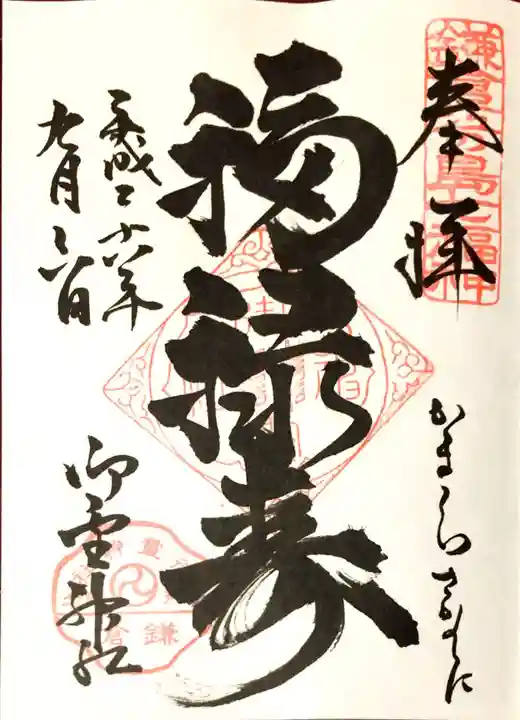 鎌倉江島七福神
奉拝
かまくら
福禄寿
平成二十六年
九月
御霊神社
鎌倉